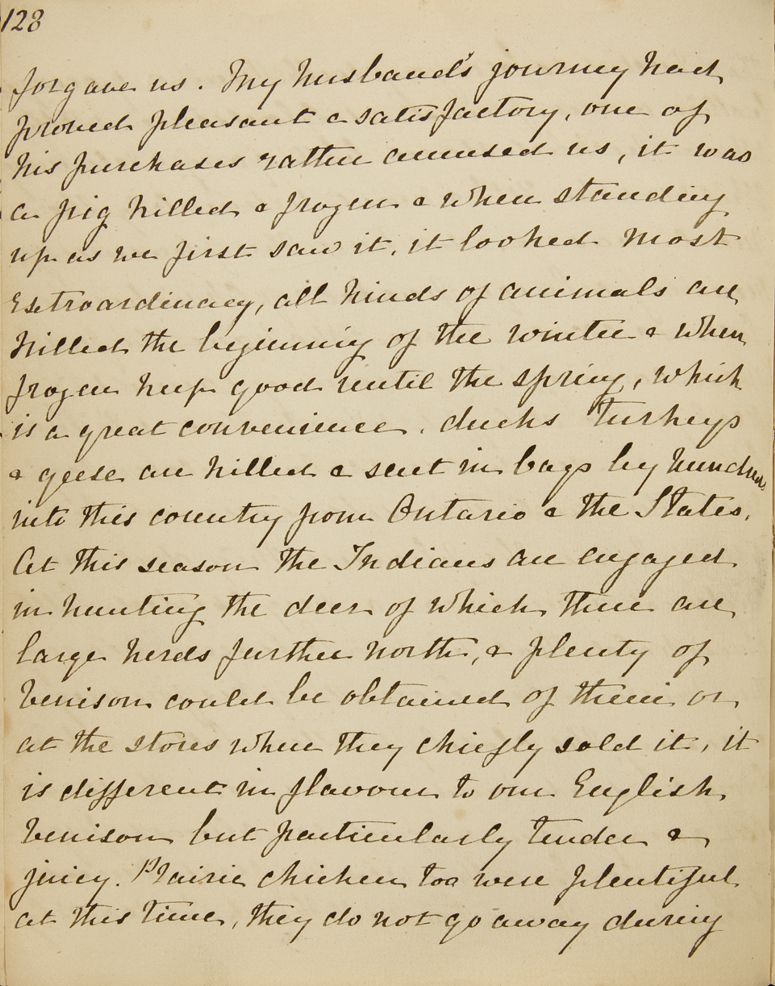 128
forgave us. My husband's journey had
proved pleasant & satisfactory, one of
his purchases rather amused us, it was
a pig killed & frozen & when standing
up as we first saw it, it looked most
extraordinary, all kinds of animals are
killed the beginning of the winter & when
frozen keep good until the spring, which
is a great convenience. ducks Turkeys
& geese are killed & sent in bags by hundreds
into this country from Ontario & the States.
At this season the Indians are engaged
in hunting the deer of which there are
large herds further north, & plenty of
Venison could be obtained of them or
at the stores where they chiefly sold it, it
is different in flavour to our English
Venison but particularly tender &
juicy. Prairie chicken too were plentiful
at this time, they do not go away during